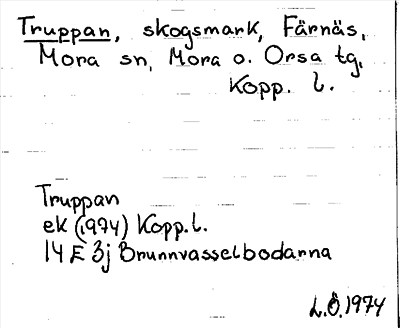 Truppan, skogsmark, Färnäs,
Mora sn, Mora o. Orsa tg,
Kopp. l.
Truppan
ek (1974) Kopp. l.
14 E 3j Brunnvasselbodarna
L.Ö. 1974